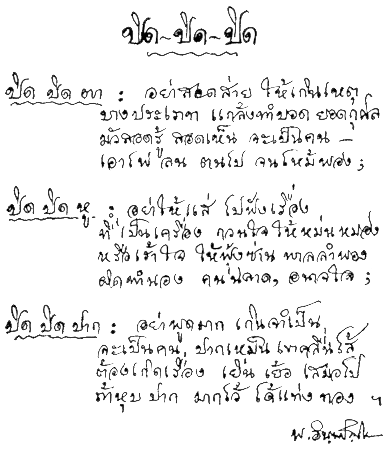 ปิด-ปิด-ปิด
ปิด ปิด ตา : อย่าสอดส่าย ให้เกินเหตุ
บางประเภท แกล้งทำบอด ยอดกุศล
มัวสอดรู้ สอดเห็น จะเป็นคน –
เอาไฟ ลน ตนไป จนไหม้พอง ;
ปิด ปิด หู : อย่าให้แส่ ไปฟังเรื่อง
ที่เป็นเครื่อง กวนใจ ให้หม่นหมอง
หรือเร้าใจ ให้ฟุ้งซ่าน พาลลำพอง
ผิดทำนอง คนฉลาด, อนาถใจ ;
ปิด ปิด ปาก : อย่าพูดมาก เกินจำเป็น
จะเป็นคน ปากเหม็น เขาคลื่นไส้
ต้องเกิดเรื่อง เยิ่นเย้อ เสมอไป
ถ้าหุบ ปาก มากไว้ ได้แท่งทอง ฯ
พ. อินฺทปญฺโญ